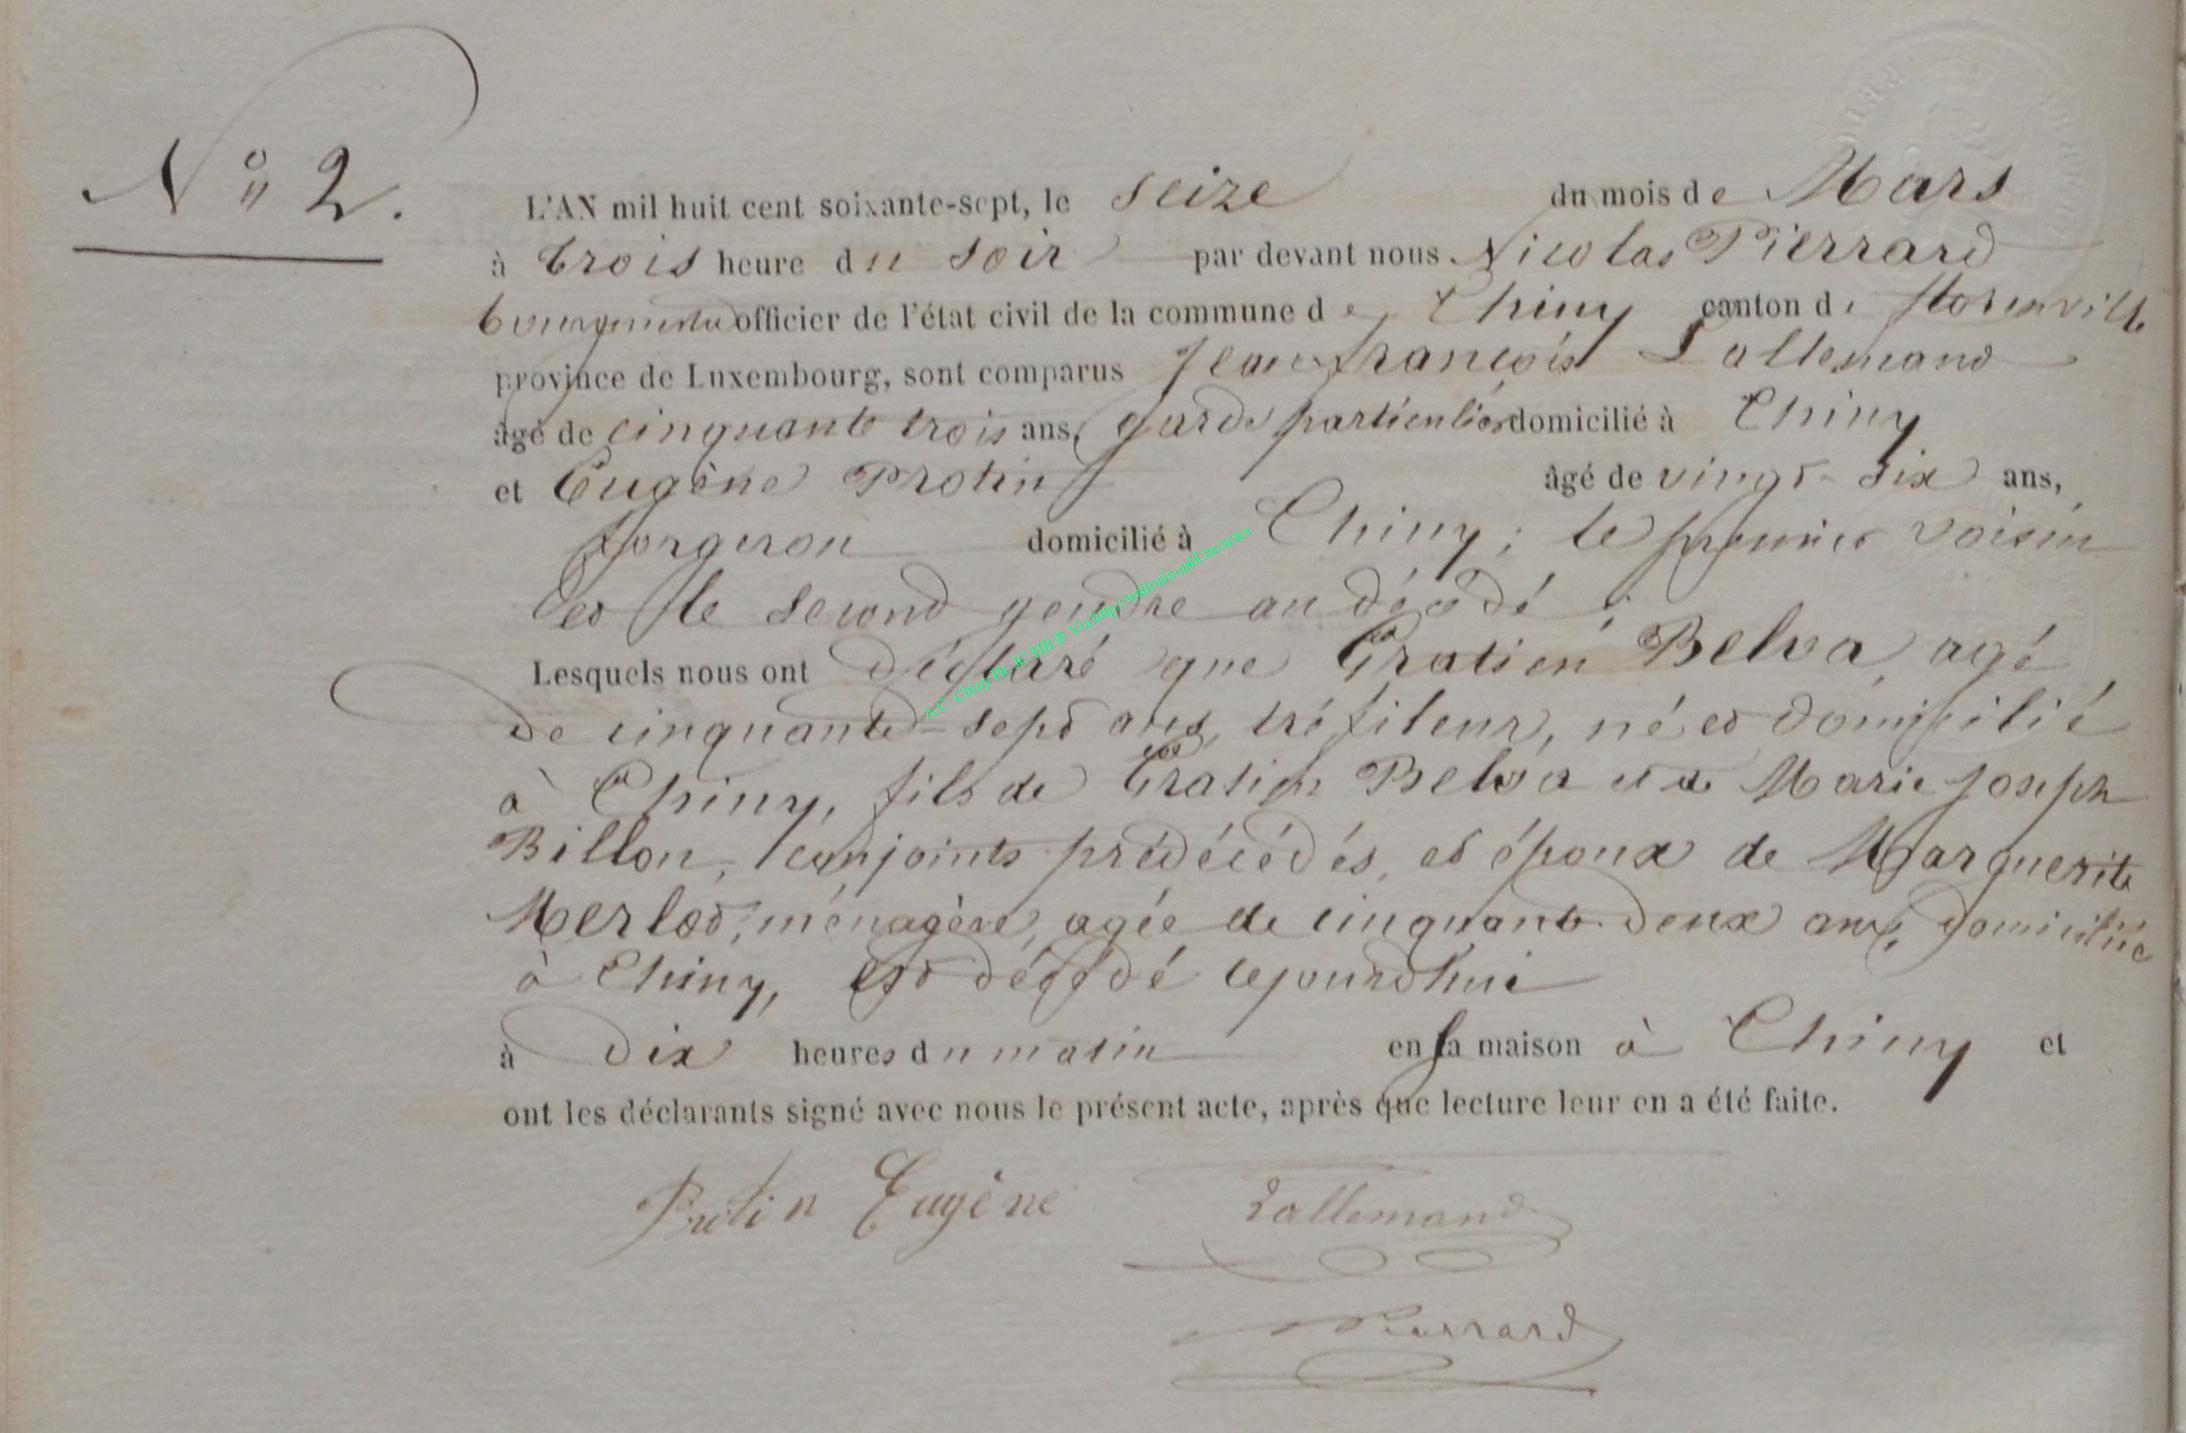 N° 2.
L'AN mil huit cent soixante-sept, le seize du mois de Mars
à trois heure du soir par devant nous Nicolas Pierrard
bourgmestre officier de l'état civil de la commune de Chiny canton de florenville
province de Luxembourg, sont comparus Jean françois Lallemand
âgé de cinquante trois ans, garde particulier domicilié à Chiny
et Eugène Protin âgé de vingt-six ans,
forgeron domicilié à Chiny; le premier voisin
et le second gendre au décédé;
Lesquels nous ont déclaré que Gratien Belva, agé
de cinquante-sept ans, tréfileur, né et domicilié
à Chiny, fils de Gratien Belva et de Marie Joseph
Billon, conjoints prédécédés, et époux de Marguerite
Merlot, ménagère, agée de cinquante-deux ans, domiciliée
à Chiny, est décédé cejourd'hui
à dix heures du matin en sa maison à Chiny et
ont les déclarants signé avec nous le présent acte, après que lecture leur en a été faite.
Protin Eugène Lallemand
Pierrard